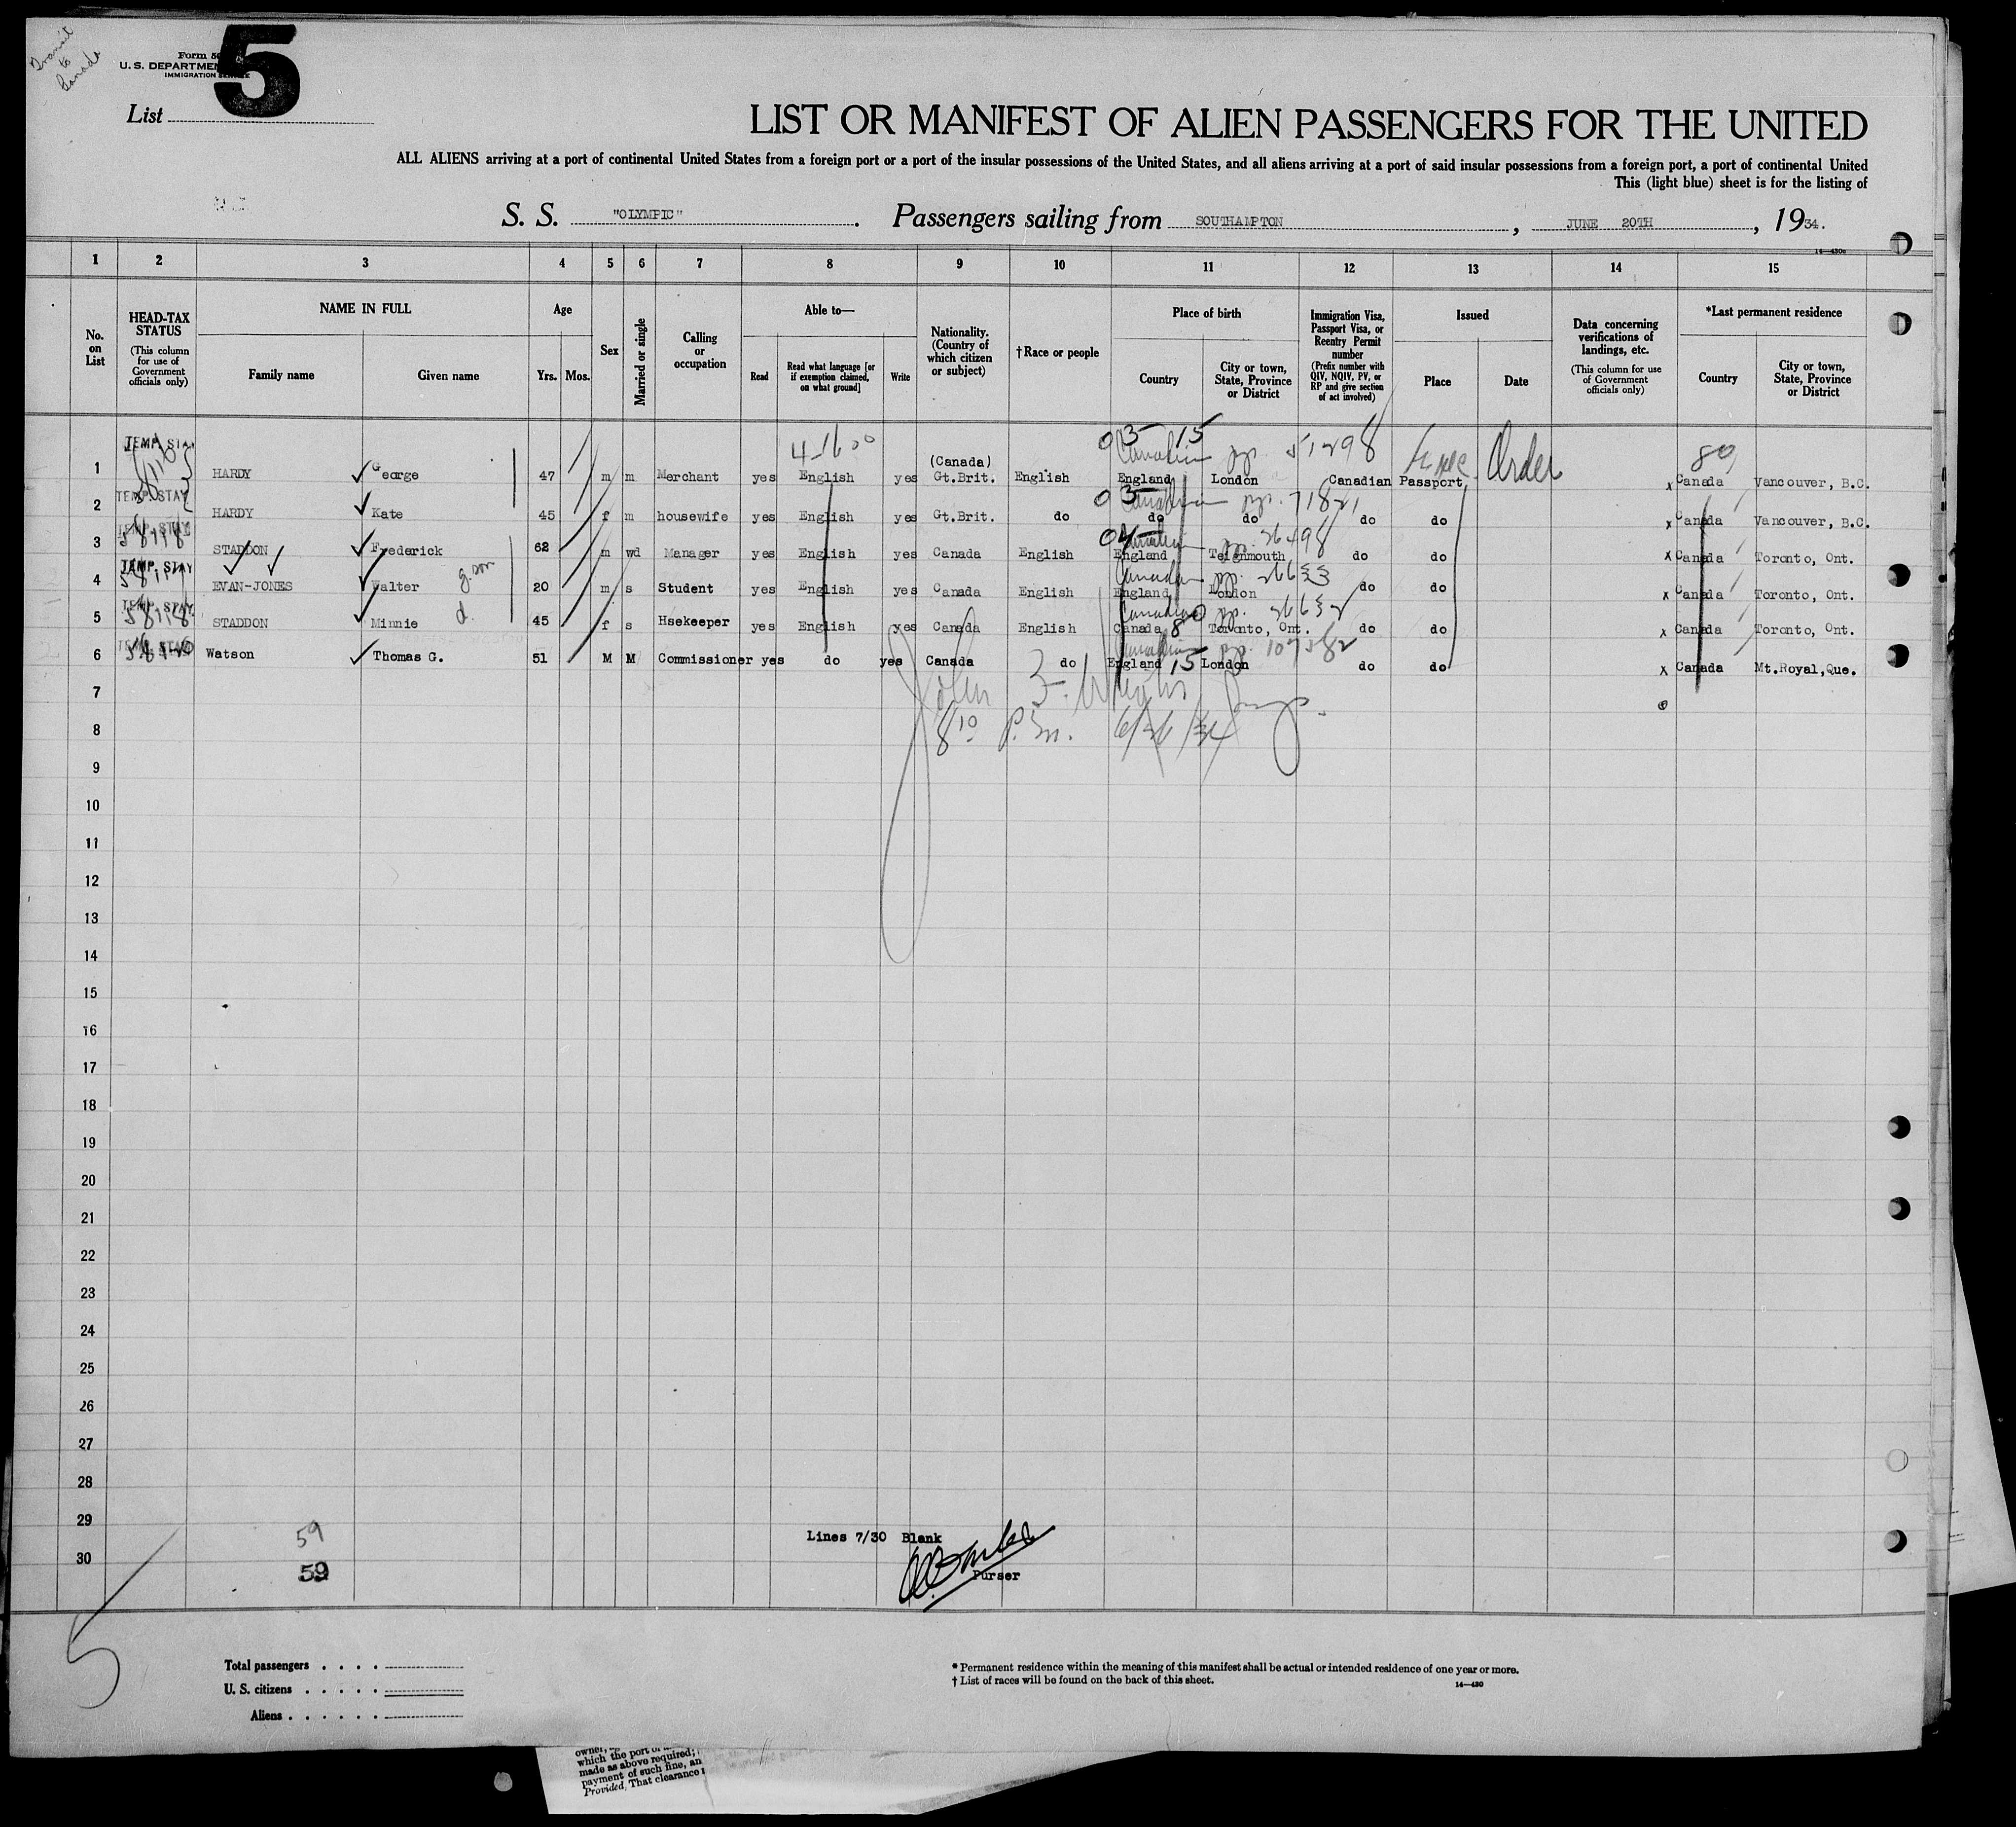 Transit
to
Canada
Form 50
U. S. DEPARTMEN
IMMIGRATION
List 5
LIST OR MANIFEST OF ALIEN PASSENGERS FOR THE UNITED
ALL ALIENS arriving at a port of continental United States from a foreign port or a port of the insular possessions of the United States, and all aliens arriving at a port of said insular possessions from a foreign port, a port of continental United
This (light blue) sheet is for the listing of
S. S. "OLYMPIC". Passengers sailing from SOUTHAMPTON, JUNE 20TH, 1934.
1 2 3 4 5 6 7 8 9 10 11 12 13 14 15
No. on List
HEAD-TAX STATUS
(This column for use of Government officials only)
NAME IN FULL
Family name
Given name
Age
Yrs. Mos.
Sex
Married or single
Calling or occupation
Able to—
Read
Read what language [or if exemption claimed, on what ground]
Write
Nationality. (Country of which citizen or subject)
†Race or people
Place of birth
Country
City or town, State, Province or District
Immigration Visa, Passport Visa, or Reentry Permit number
(Prefix number with QIV, NQIV, PV, or RP and give section of act involved)
Issued
Place
Date
Data concerning verifications of landings, etc.
(This column for use of Government officials only)
*Last permanent residence
Country
City or town, State, Province or District
03 15
Canadian pp. 51298 Order
1 TEMP. STAY HARDY George 47 m m Merchant yes English yes (Canada) Gt.Brit. English England London Canadian Passport x Canada Vancouver, B.C.
03 Canadian pp. 71821
2 TEMP. STAY HARDY Kate 45 f m housewife yes English yes Gt.Brit. do do do do do x Canada Vancouver, B.C.
Canadian pp. 26498
3 TEMP. STAY STADDON Frederick 62 m wd Manager yes English yes Canada English England Teignmouth do do x Canada Toronto, Ont.
Canadian pp. 26633
4 TEMP. STAY EVAN-JONES Walter g.son 20 m s Student yes English yes Canada English England London do do x Canada Toronto, Ont.
Canadian pp. 26632
5 TEMP. STAY STADDON Minnie d. 45 f s Hsekeeper yes English yes Canada English Canada Toronto, Ont. do do x Canada Toronto, Ont.
Canadian pp.
6 TEMP. STAY Watson Thomas G. 51 M M Commissioner yes do yes Canada do England 15 London do do x Canada Mt.Royal,Que.
7
8 8 10 P.M. 6/26/34
9
10
11
12
13
14
15
16
17
18
19
20
21
22
23
24
25
26
27
28
29
59
Lines 7/30 Blank
30
59
Purser
5
Total passengers
U. S. citizens
Aliens
* Permanent residence within the meaning of this manifest shall be actual or intended residence of one year or more.
† List of races will be found on the back of this sheet.
14—430
which the port of
made as above required;
payment of such fine, an
Provided, That clearance